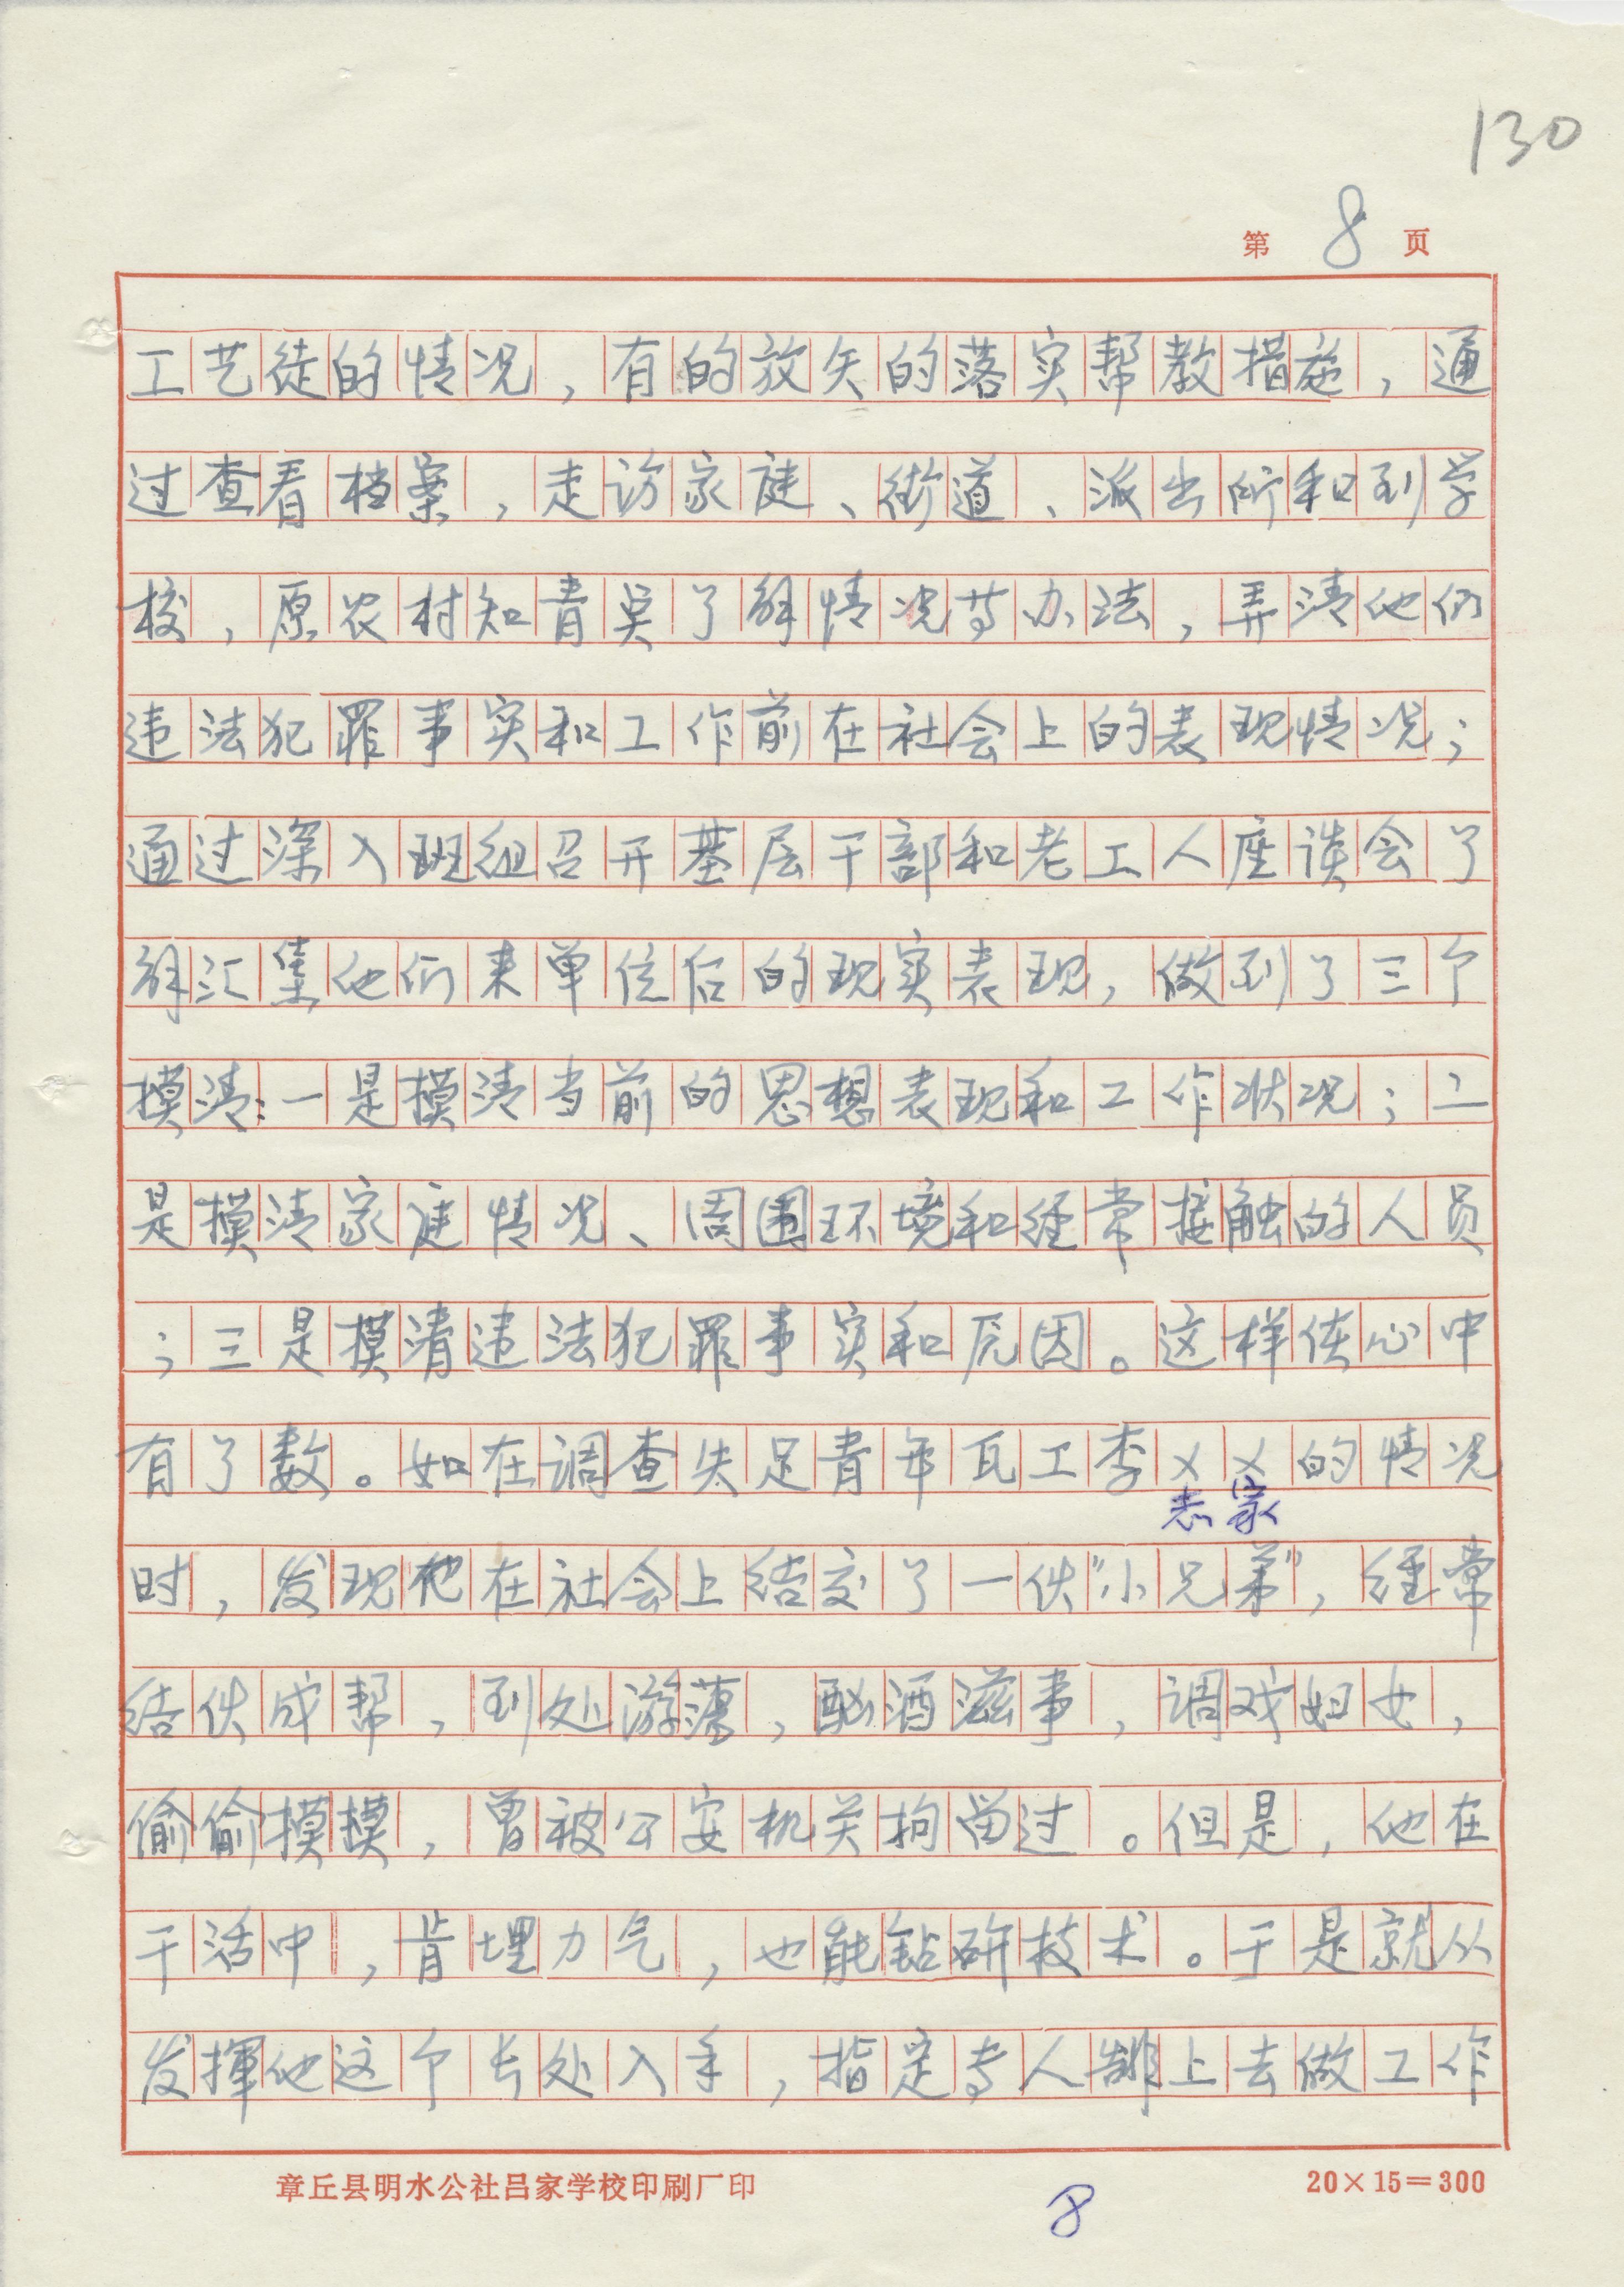 130
第 8 页
工艺徒的情况，有的放矢的落实帮教措施，通
过查看档案，走访家庭、街道、派出所和到学
校，原农村知青点了解情况等办法，弄清他们
违法犯罪事实和工作前在社会上的表现情况；
通过深入班组召开基层干部和老工人座谈会了
解汇集他们来单位后的现实表现，做到了三个
摸清：一是摸清当前的思想表现和工作状况；二
是摸清家庭情况、周围环境和经常接触的人员
；三是摸清违法犯罪事实和原因。这样使心中
有了数。如在调查失足青年瓦工李××的情况
志家
时，发现他在社会上结交了一伙“小兄弟”，经常
结伙成帮，到处游荡，酗酒滋事，调戏妇女，
偷偷摸摸，曾被公安机关拘留过。但是，他在
干活中，肯埋力气，也能钻研技术。于是就从
发挥他这个长处入手，指定专人帮上去做工作
章丘县明水公社吕家学校印刷厂印
20×15＝300
8